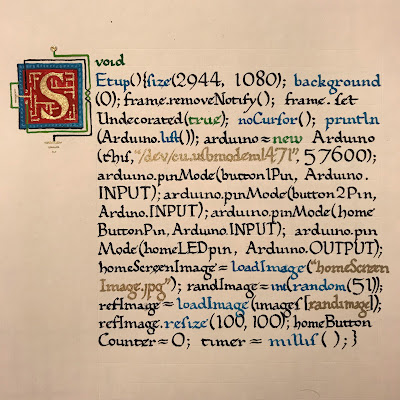 void
Setup(){size(2944, 1080); background
(0); frame.removeNotify(); frame.set
Undecorated(true); noCursor(); println
(Arduino.list()); arduino=new Arduino
(this,"/dev/cu.usbmodem1471", 57600);
arduino.pinMode(button1Pin, Arduino.
INPUT); arduino.pinMode(button2Pin,
Arduino.INPUT); arduino.pinMode(home
ButtonPin, Arduino.INPUT); arduino.pin
Mode(homeLEDpin, Arduino.OUTPUT);
homeScreenImage=loadImage("homeScreen
Image.jpg"); randImage=int(random(51));
refImage=loadImage(images[randimage]);
refImage.resize(100,100); homeButton
Counter=0; timer=millis(); }